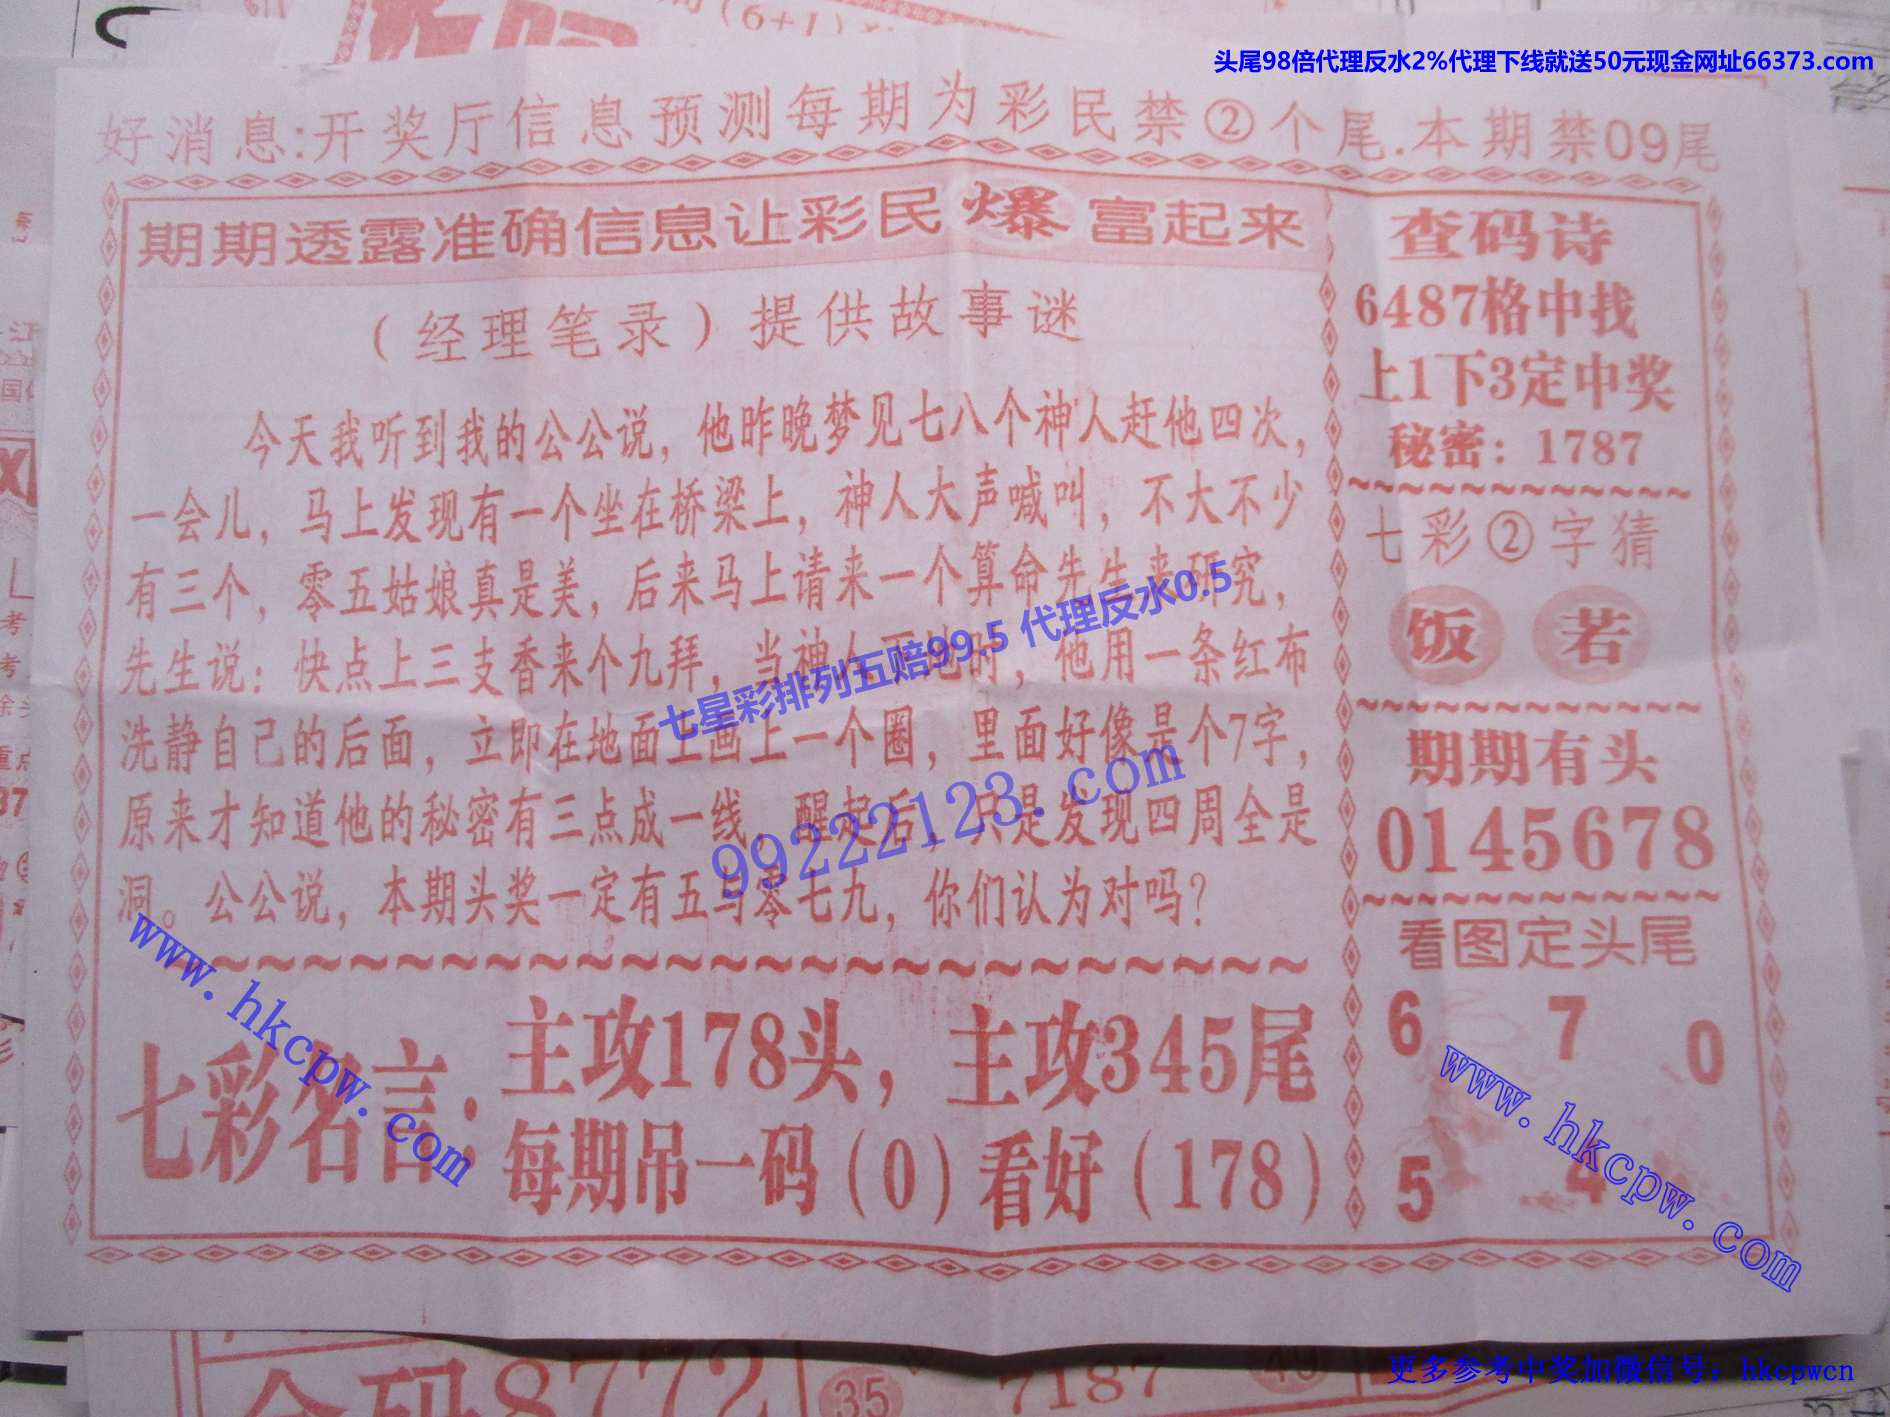 头尾98倍代理反水2%代理下线就送50元现金网址66373.com
好消息:开奖厅信息预测每期为彩民禁②个尾.本期禁09尾
期期透露准确信息让彩民爆富起来
（经理笔录）提供故事谜
今天我听到我的公公说，他昨晚梦见七八个神人赶他四次，
一会儿，马上发现有一个坐在桥梁上，神人大声喊叫，不大不少
有三个，零五姑娘真是美，后来马上请来一个算命先生来研究，
先生说：快点上三支香来个九拜，当神人下地时，他用一条红布
洗静自己的后面，立即在地面上画上一个圈，里面好像是个7字，
原来才知道他的秘密有三点成一线，醒起后，只是发现四周全是
洞。公公说，本期头奖一定有五与零七九，你们认为对吗？
七彩名言：
主攻178头，主攻345尾
每期吊一码（0）看好（178）
查码诗
6487格中找
上1下3定中奖
秘密：1787
七彩②字猜
饭 若
期期有头
0145678
看图定头尾
6 7 0
5 4
七星彩排列五赔99.5 代理反水0.5
99222123.com
www.hkcpw.com
www.hkcpw.com
8772
35
7187
更多参考中奖加微信号：hkcpwcn